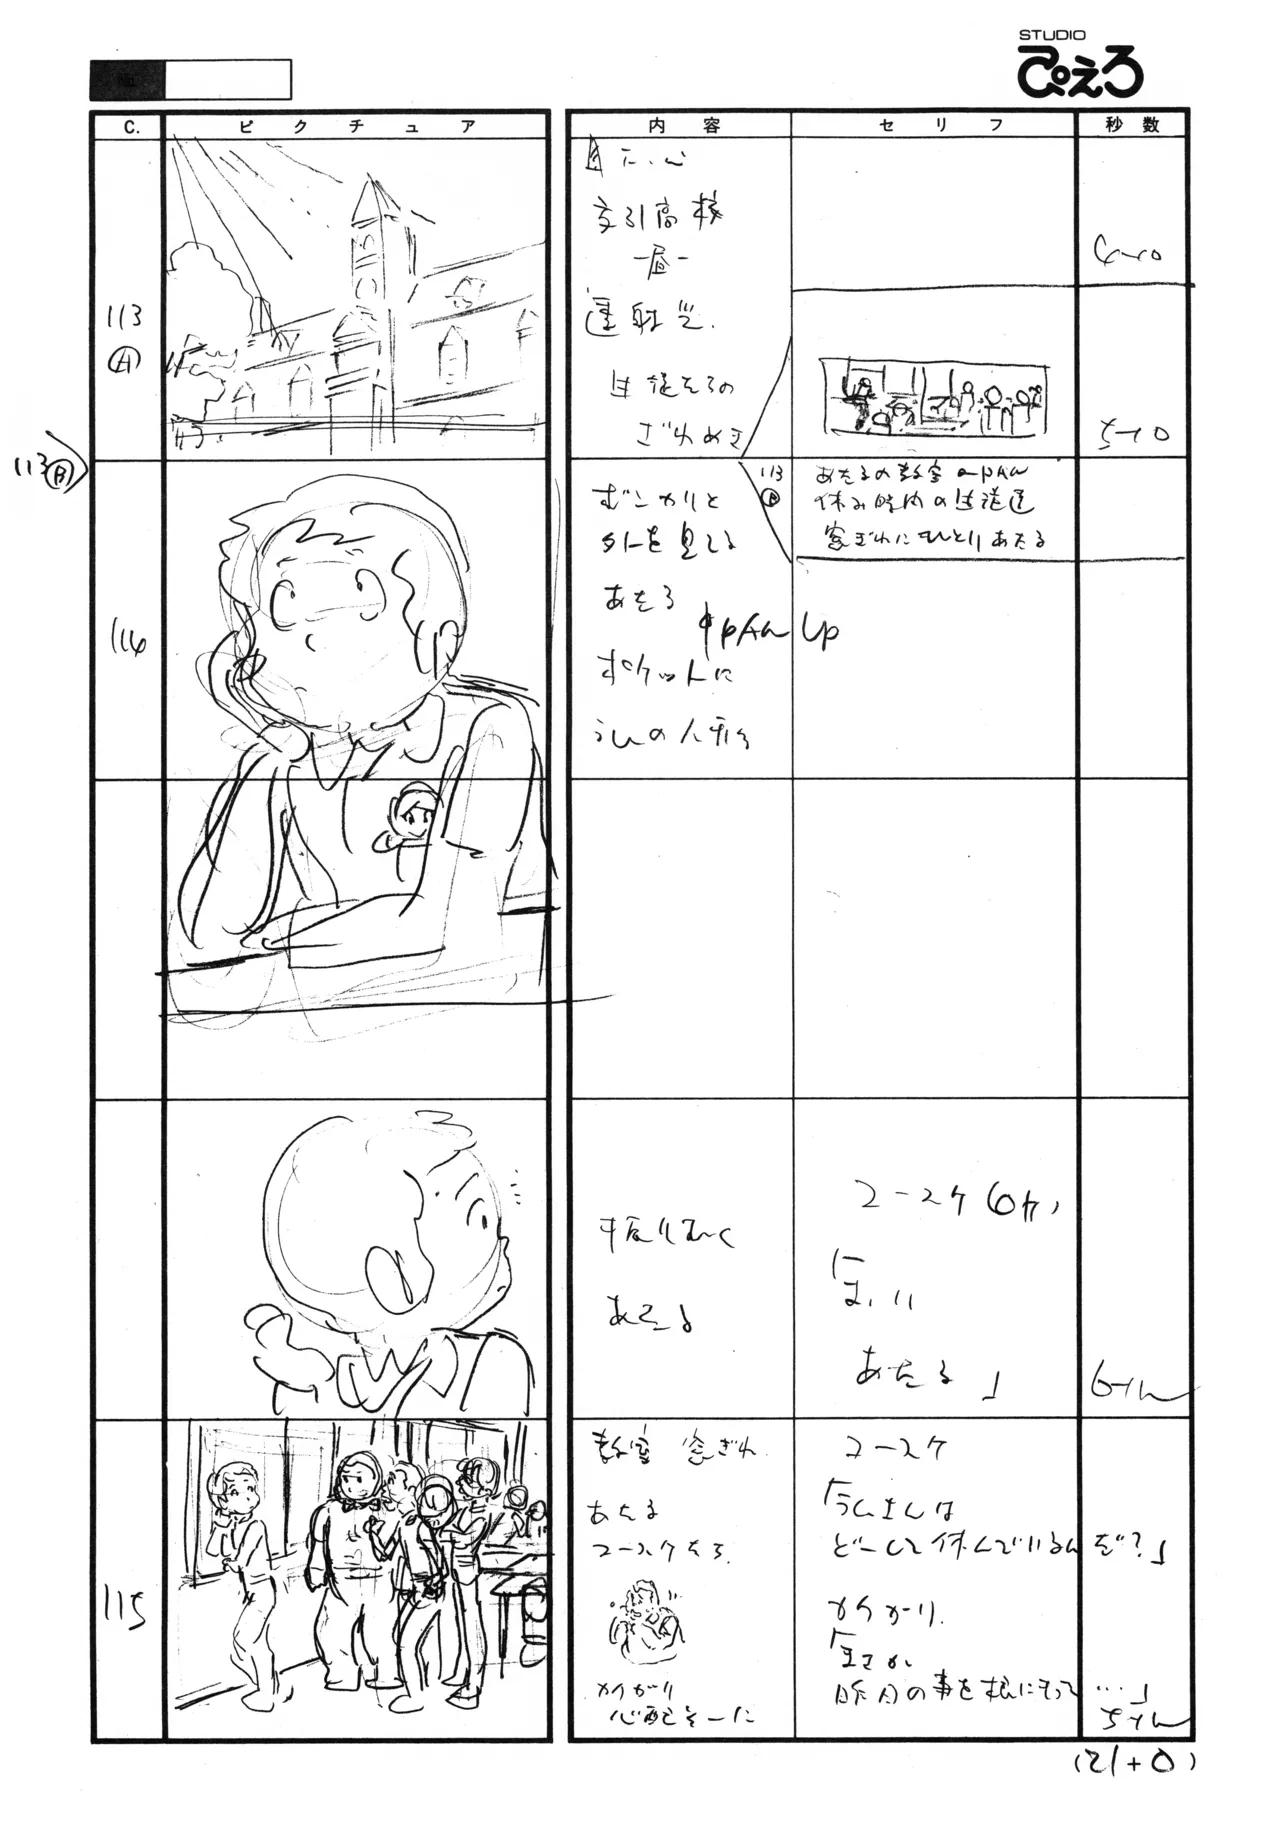 STUDIO
ぴえろ
C.
ピクチュア
内容
セリフ
秒数
113
A
友引高校
-昼-
生徒たちの
ざわめき
4+0
5+0
113
B
113
B
あたるの教室 PAN
休み時間の生徒達
窓ぎわにひとりあたる
114
ぼんやりと
外を見てる
あたる
PAN UP
ポケットに
ラムの人形
振りむく
あたる
コースケ(OFF)
「おい
あたる」
6+0
115
教室 窓ぎわ
あたる
コースケたち
メガネ
心配そーに
コースケ
「ラムさんは
どーして休んでいるんだ?」
メガネ
「まさか
昨日の事を根にもって…」
5+0
(21+0)